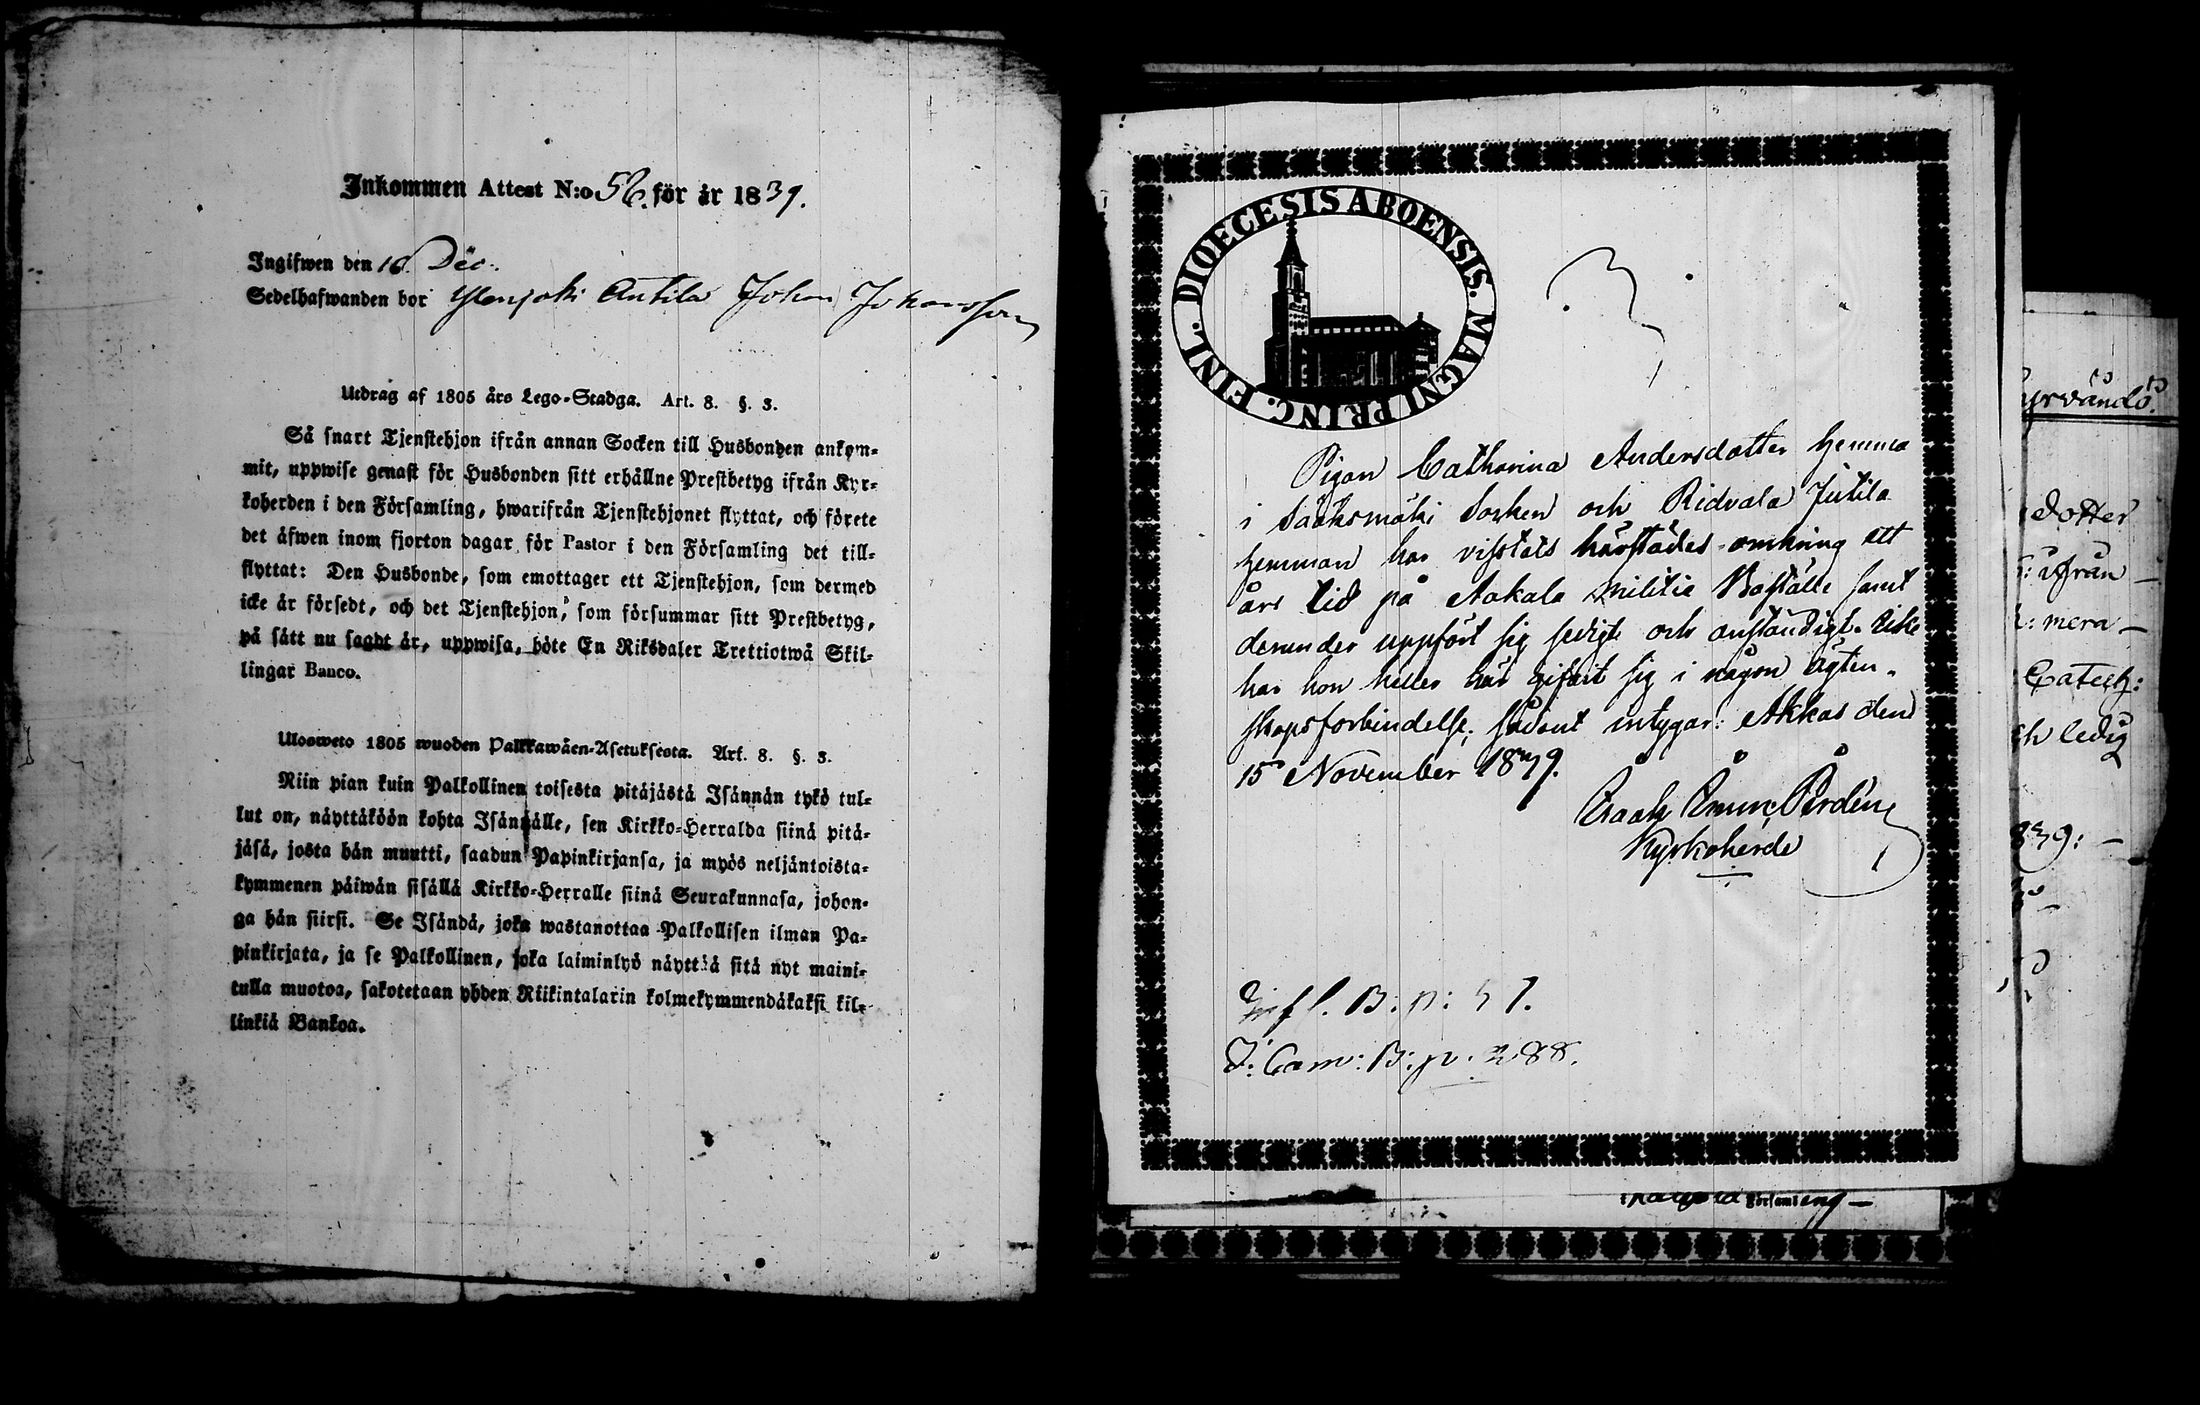 Inkommen Attest N:o 56. för år 1839.
Ingifwen den 16. Dec:
Sedelhafwanden bor Ylenjoki Antila Johan Johansson
Utdrag af 1805 års Lego-Stadga. Art. 8. §. 3.
Så snart Tjenstehjon ifrån annan Socken till Husbonden ankom-
mit, uppwise genast för Husbonden sitt erhållne Prestbetyg ifrån Kyr-
koherden i den Församling, hwarifrån Tjenstehjonet flyttat, och förete
det äfwen inom fjorton dagar för Pastor i den Församling det till-
flyttat: Den Husbonde, som emottager ett Tjenstehjon, som dermed
icke är försedt, och det Tjenstehjon, som försummar sitt Prestbetyg,
på sätt nu sagdt är, uppwisa, böte En Riksdaler Trettiotwå Skil-
lingar Banco.
Ulosweto 1805 wuoden Palkkawäen-Asetuksesta. Art. 8. §. 3.
Niin pian kuin Palkollinen toisesta pitäjästä Isännän tykö tul-
lut on, näyttäköön kohta Isännälle, sen Kirkko-Herralda siinä pitä-
jäsä, josta hän muutti, saadun Papinkirjansa, ja myös neljäntoista-
kymmenen päiwän sisällä Kirkko-Herralle siinä Seurakunnasa, johon-
ga hän siirsi. Se Isändä, joka wastanottaa Palkollisen ilman Pa-
pinkirjata, ja se Palkollinen, joka laiminlyö näyttää sitä nyt maini-
tulla muotoa, sakotetaan yhden Riikintalarin kolmekymmendäkaksi kil-
linkiä Bankoa.
DIOECESIS ABOENSIS. MAGNI PRINC. FINL.
Pigan Catharina Andersdotter hemma
i Sääksmäki Socken och Ridvala Jutila
hemman har vistats härstädes omkring ett
års tid på Aakala Militie Boställe samt
derunder uppfört sig sedigt och anständigt. Icke
har hon heller här gifvit sig i någon ägten-
skapsforbindelse; sådant intygar: Akkas den
15 November 1839.
Kyrkoherde
Infl. B: p: 57.
I: Com: B: p: 288.
Församling
dotter
ifrån
mera
Catech:
ledig
839: